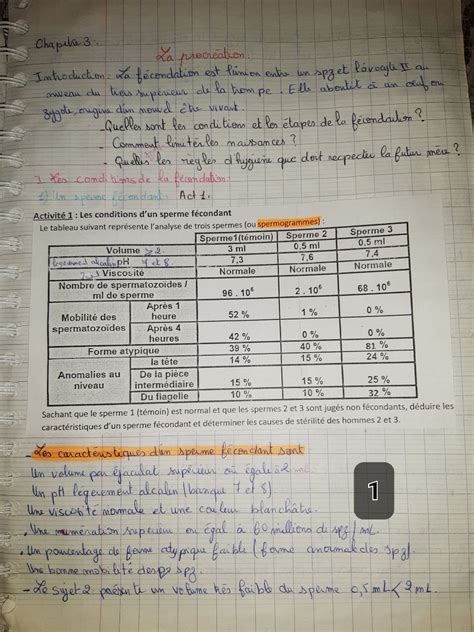 Chapitre 3 :
La procréation.
Introduction : La fécondation est l'union entre un spz et l'ovocyte II au
niveau du tiers supérieur de la trompe. Elle aboutit à un œuf ou
zygote, origine d'un nouvel être vivant.
- Quelles sont les conditions et les étapes de la fécondation ?
- Comment limiter les naissances ?
- Quelles les règles d'hygiène que doit respecter la futur mère ?
I. Les conditions de la fécondation.
1) Un sperme fécondant : Act 1.
Activité 1 : Les conditions d'un sperme fécondant
Le tableau suivant représente l'analyse de trois spermes (ou spermogrammes) :
Sperme1(témoin) Sperme 2 Sperme 3
Volume ≥ 2 3 ml 0,5 ml 0,5 ml
légerement alcalin pH 7 et 8 7,3 7,6 7,4
Viscosité Normale Normale Normale
Nombre de spermatozoïdes / ml de sperme 96 . 10⁶ 2 . 10⁶ 68 . 10⁶
Mobilité des spermatozoïdes Après 1 heure 52 % 1 % 0 %
Après 4 heures 42 % 0 % 0 %
Forme atypique 39 % 40 % 81 %
Anomalies au niveau la tête 14 % 15 % 24 %
De la pièce intermédiaire 15 % 15 % 25 %
Du flagelle 10 % 10 % 32 %
Sachant que le sperme 1 (témoin) est normal et que les spermes 2 et 3 sont jugés non fécondants, déduire les
caractéristiques d'un sperme fécondant et déterminer les causes de stérilité des hommes 2 et 3.
- Les caractéristiques d'un sperme fécondant sont
Un volume par éjaculat supérieur où égale à 2 mL.
Un pH légerement alcalin (banque 7 et 8)
Une viscosité normale et une couleur blanchâtre.
. Une numération supérieur ou égal à 60 millions de spz / mL.
. Un pourcentage de forme atypique faible (forme anormale des spz)
Une bonne mobilité des spz.
- Le sujet 2 présente un volume très faible du sperme 0,5 mL < 2 mL.
1